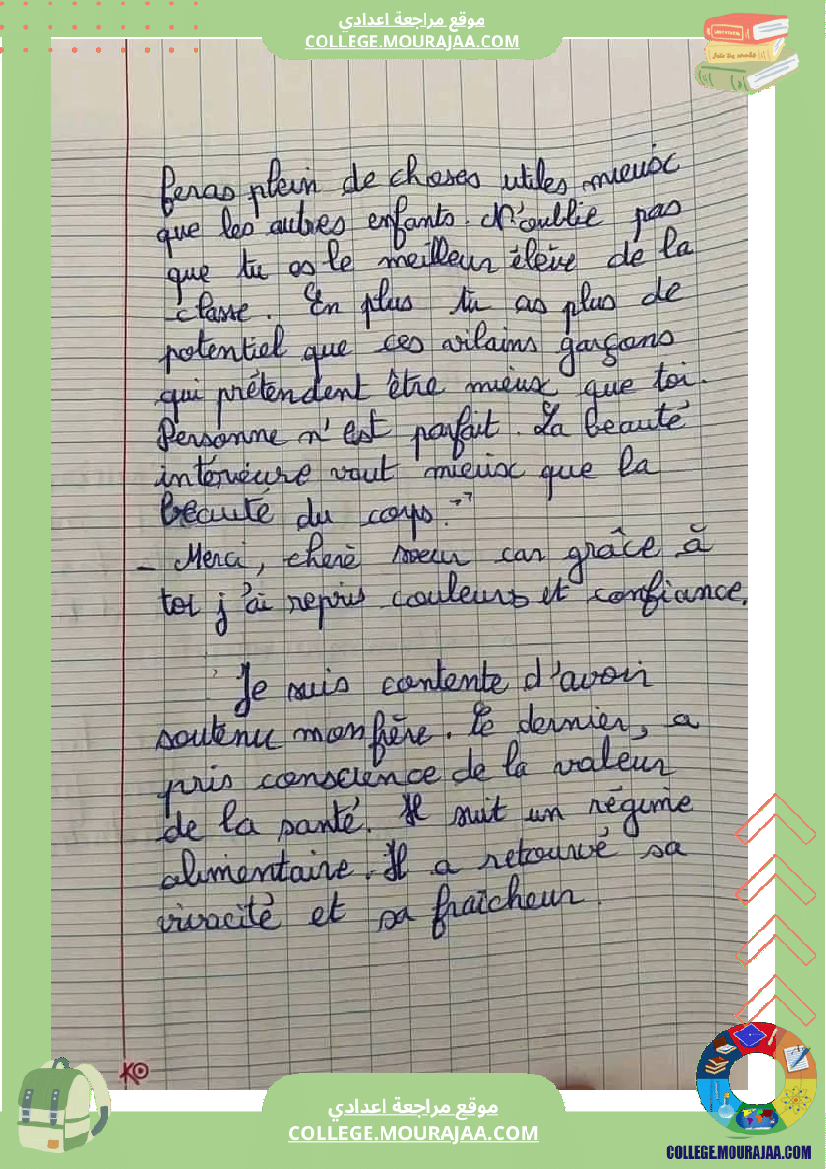 موقع مراجعة اعدادي
COLLEGE.MOURAJAA.COM
feras plein de choses utiles mieux
que les autres enfants. N'oublie pas
que tu es le meilleur élève de la
classe. En plus tu as plus de
potentiel que ces vilains garçons
qui prétendent être mieux que toi.
Personne n'est parfait. La beauté
intérieure vaut mieux que la
beauté du corps."
- Merci, cherè soeur car grâce à
toi j'ai repris couleurs et confiance.
Je suis contente d'avoir
soutenu mon frère. Ce dernier, a
pris conscience de la valeur
de la santé. Il suit un régime
alimentaire. Il a retrouvé sa
vivacité et sa fraîcheur.
KO
موقع مراجعة اعدادي
COLLEGE.MOURAJAA.COM
COLLEGE.MOURAJAA.COM